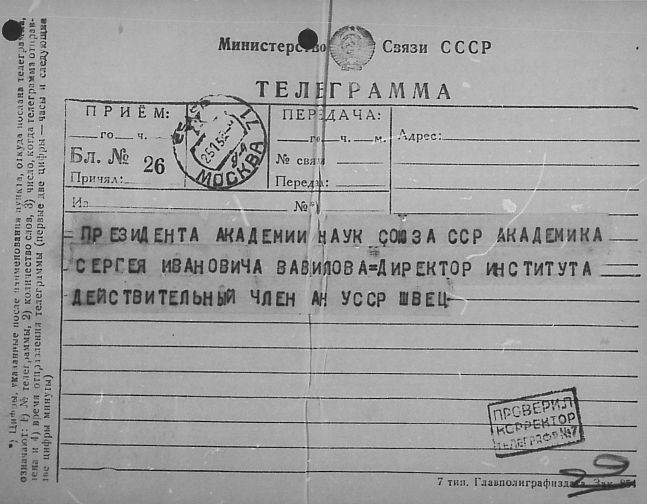 Министерство Связи СССР
ТЕЛЕГРАММА
ПРИЁМ:
го ч.
Бл. № 26
Принял:
Из
МОСКВА
ПЕРЕДАЧА:
го ч. м.
№ связи
Передал:
№*)
Адрес:
ПРЕЗИДЕНТА АКАДЕМИИ НАУК СОЮЗА ССР АКАДЕМИКА
СЕРГЕЯ ИВАНОВИЧА ВАВИЛОВА=ДИРЕКТОР ИНСТИТУТА
ДЕЙСТВИТЕЛЬНЫЙ ЧЛЕН АН УССР ШВЕЦ-
ПРОВЕРИЛ
КОРРЕКТОР
ТЕЛЕГРАФА №7
7 тип. Главполиграфиздата. Зак.
*) Цифры, указанные после наименования пункта, откуда послана телеграмма,
означают: 1) № телеграммы, 2) количество слов, 3) число, когда телеграмма отправ-
лена и 4) время отправления телеграммы (первые две цифры — часы и следующие
две цифры минуты)